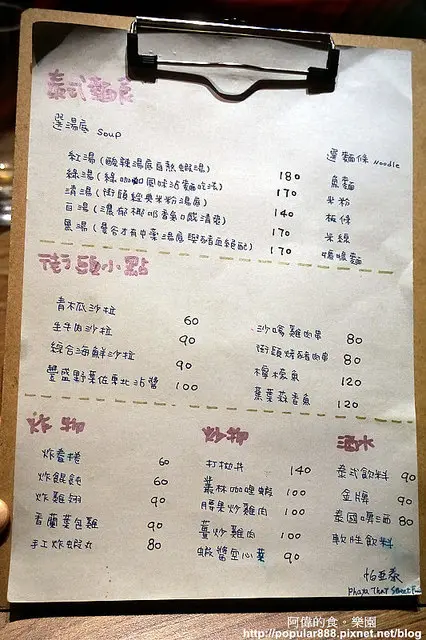 泰式麵食
選湯底 Soup
選麵條 Noodle
紅湯(酸辣湯底自熬蝦湯) 180
綠湯(綠咖咖風味沾麵吃法) 170
清湯(街頭經典米粉湯底) 140
白湯(濃郁椰奶香氣口感清爽) 170
黑湯(曼谷才有中藥湯底與豬血絕配) 170
魚麵
米粉
板條
米線
媽媽麵
街頭小點
青木瓜沙拉 60
生牛肉沙拉 90
綜合海鮮沙拉 90
豐盛野菜佐東北沾醬 100
沙嗲雞肉串 80
街頭烤豬肉串 80
檸檬魚 120
蕉葉蒜香魚 120
炸物
炸春捲 60
炸餛飩 60
炸雞翅 90
香蘭葉包雞 90
手工炸蝦丸 80
炒物
打拋丼 140
叢林咖哩蝦 100
腰果炒雞肉 100
薑炒雞肉 100
蝦醬空心菜 90
酒水
泰式飲料 90
金牌 90
泰國啤酒 80
軟性飲料
怕亞泰
Phaya Thai Street Food
阿偉的食‧樂園
http://popular888.pixnet.net/blog